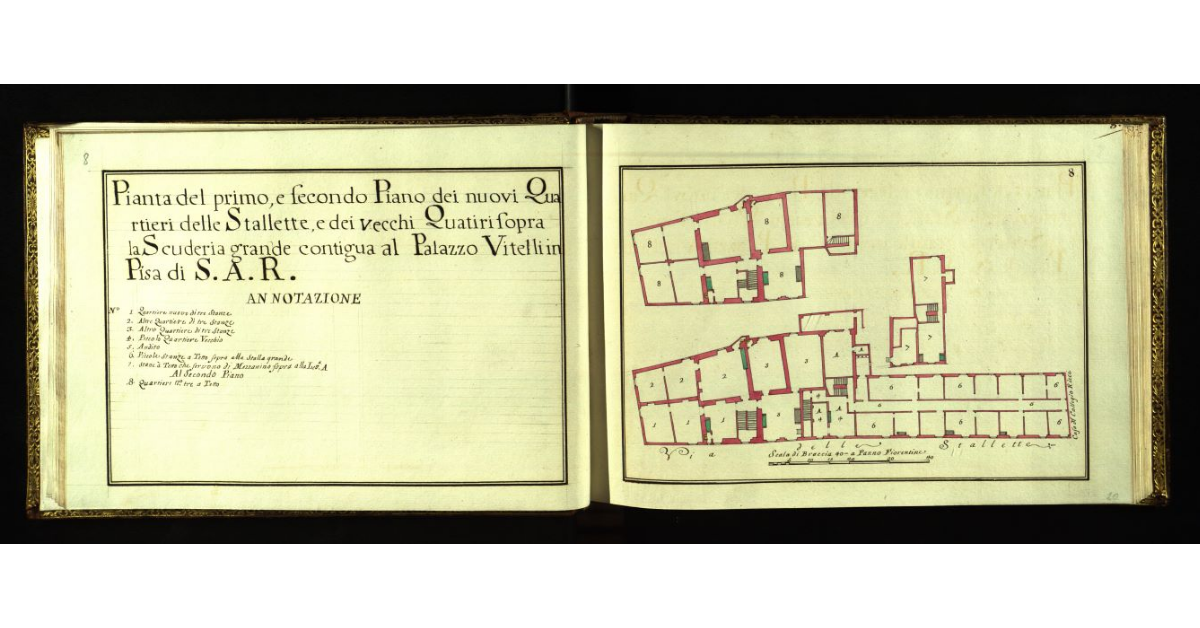 8
Pianta del primo, e secondo Piano dei nuovi Qua
rtieri delle Stallette, e dei vecchi Quatiri sopra
la Scuderia grande contigua al Palazzo Vitelli in
Pisa di S. A. R.
ANNOTAZIONE
N° 1 Quartiere nuovo di tre Stanze
2. Altro Quartiere di tre Stanze
3. Altro Quartiere di tre Stanze
4. Piccolo Quartiere Vecchio
5. Andito
6. Piccole Stanze a Tetto sopra alla Stalla grande
7. Stanze a Tetto che servono di Mezzanino sopra alla A
Al Secondo Piano
8 Quartieri tre a Tetto
8
8 8 8
8 8 8
7
7 7 7
2 2 2 3 3 A
6 6 6
1 1 1 5 4 A A 4
6 6 6
Via delle Stallette
Scala di Braccia 40 a Panno Fiorentine
20